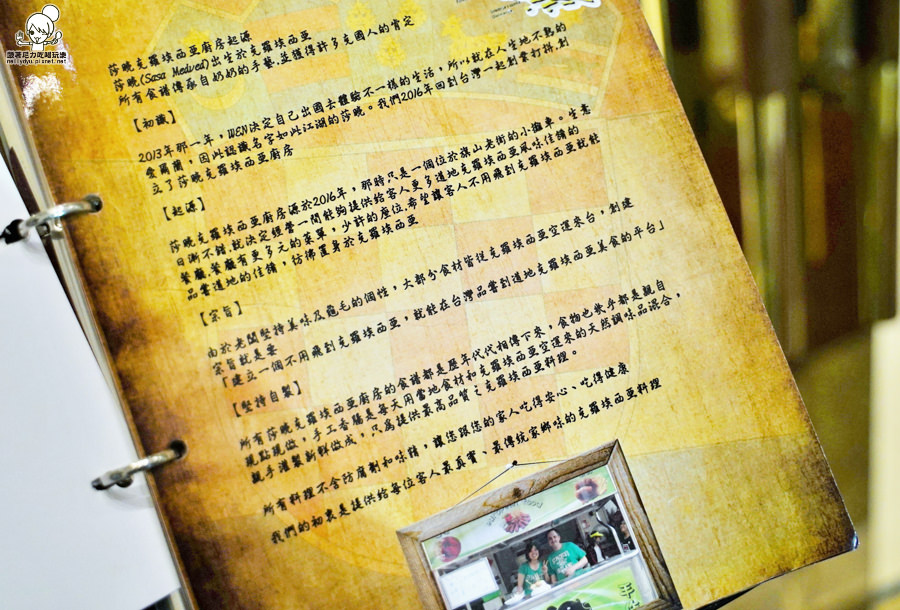 跟著尼力吃喝玩樂
nellydyu.pixnet.net
莎晚克羅埃西亞廚房起源
莎晚(Sasa Medved)出生於克羅埃西亞
所有食譜傳承自奶奶的手藝，並獲得許多克國人的肯定
【初識】
2013年那一年，WEN決定自己出國去體驗不一樣的生活，所以就在人生地不熟的
愛爾蘭，因此認識名字如此江湖的莎晚。我們2016年回到台灣一起創業打拼，創
立了莎晚克羅埃西亞廚房
【起源】
莎晚克羅埃西亞廚房源於2016年，那時只是一個位於旗山老街的小攤車。生意
日漸不錯就決定經營一間能夠提供給客人更多道地克羅埃西亞風味佳餚的
餐廳，餐廳有更多元的菜單，少許的座位，希望讓客人不用飛到克羅埃西亞就能
品嘗道地的佳餚，彷彿置身於克羅埃西亞
【宗旨】
由於老闆堅持美味及龜毛的個性，大部分食材皆從克羅埃西亞空運來台，創建
宗旨就是要
「建立一個不用飛到克羅埃西亞，就能在台灣品嘗到道地克羅埃西亞美食的平台」
【堅持自製】
所有莎晚克羅埃西亞廚房的食譜都是歷年代代相傳下來，食物也幾乎都是親自
現點現做，手工香腸是每天用當地食材和克羅埃西亞空運來的天然調味品混合，
親手灌製新鮮做成，只為提供最高品質之克羅埃西亞料理。
所有料理不含防腐劑和味精，讓您跟您的家人吃得安心、吃得健康
我們的初衷是提供給每位客人最真實、最傳統家鄉味的克羅埃西亞料理